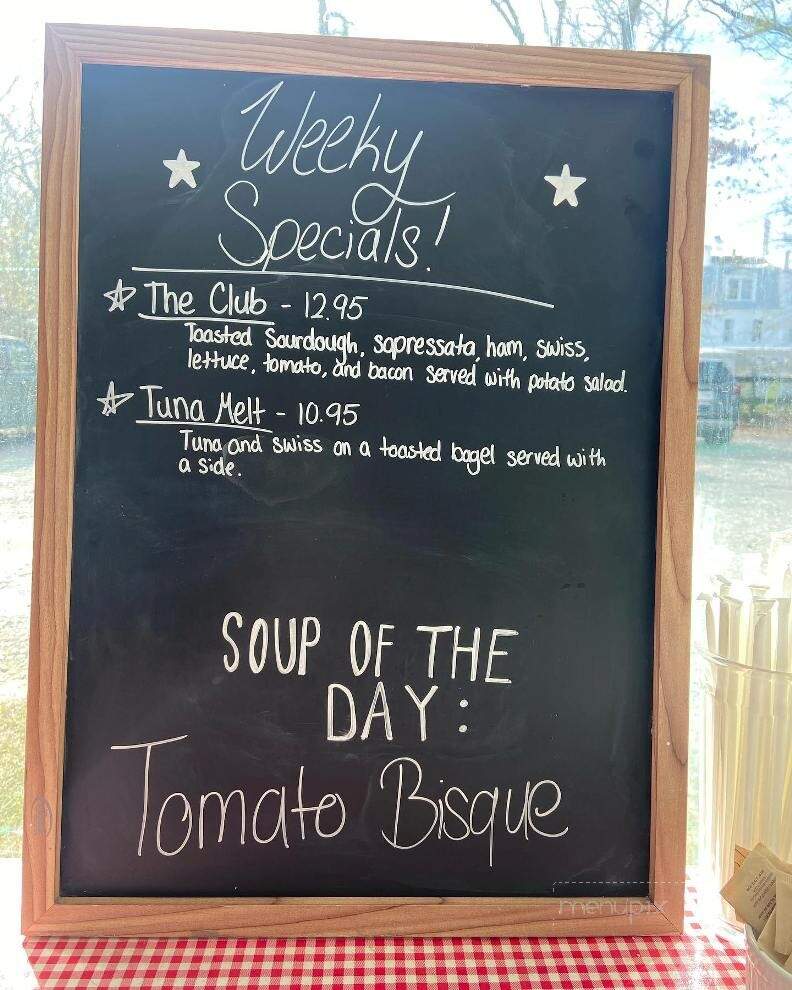 Weeky
Specials!
The Club - 12.95
Toasted Sourdough, sopressata, ham, swiss,
lettuce, tomato, and bacon served with potato salad.
Tuna Melt - 10.95
Tuna and swiss on a toasted bagel served with
a side.
SOUP OF THE
DAY:
Tomato Bisque
menupix